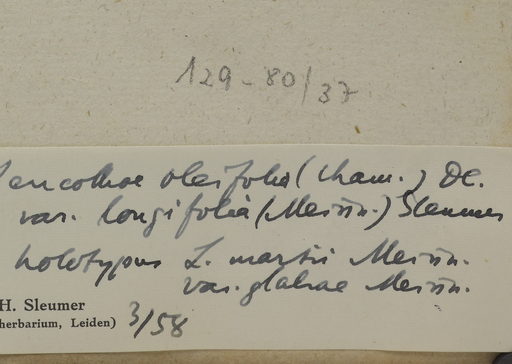 129-80/37
Leucothoe oleifolia (Cham.) DC.
var. longifolia (Meissn.) Sleumer
holotypus L. martii Meissn.
var. glabra Meissn.
H. Sleumer
herbarium, Leiden) 3/58